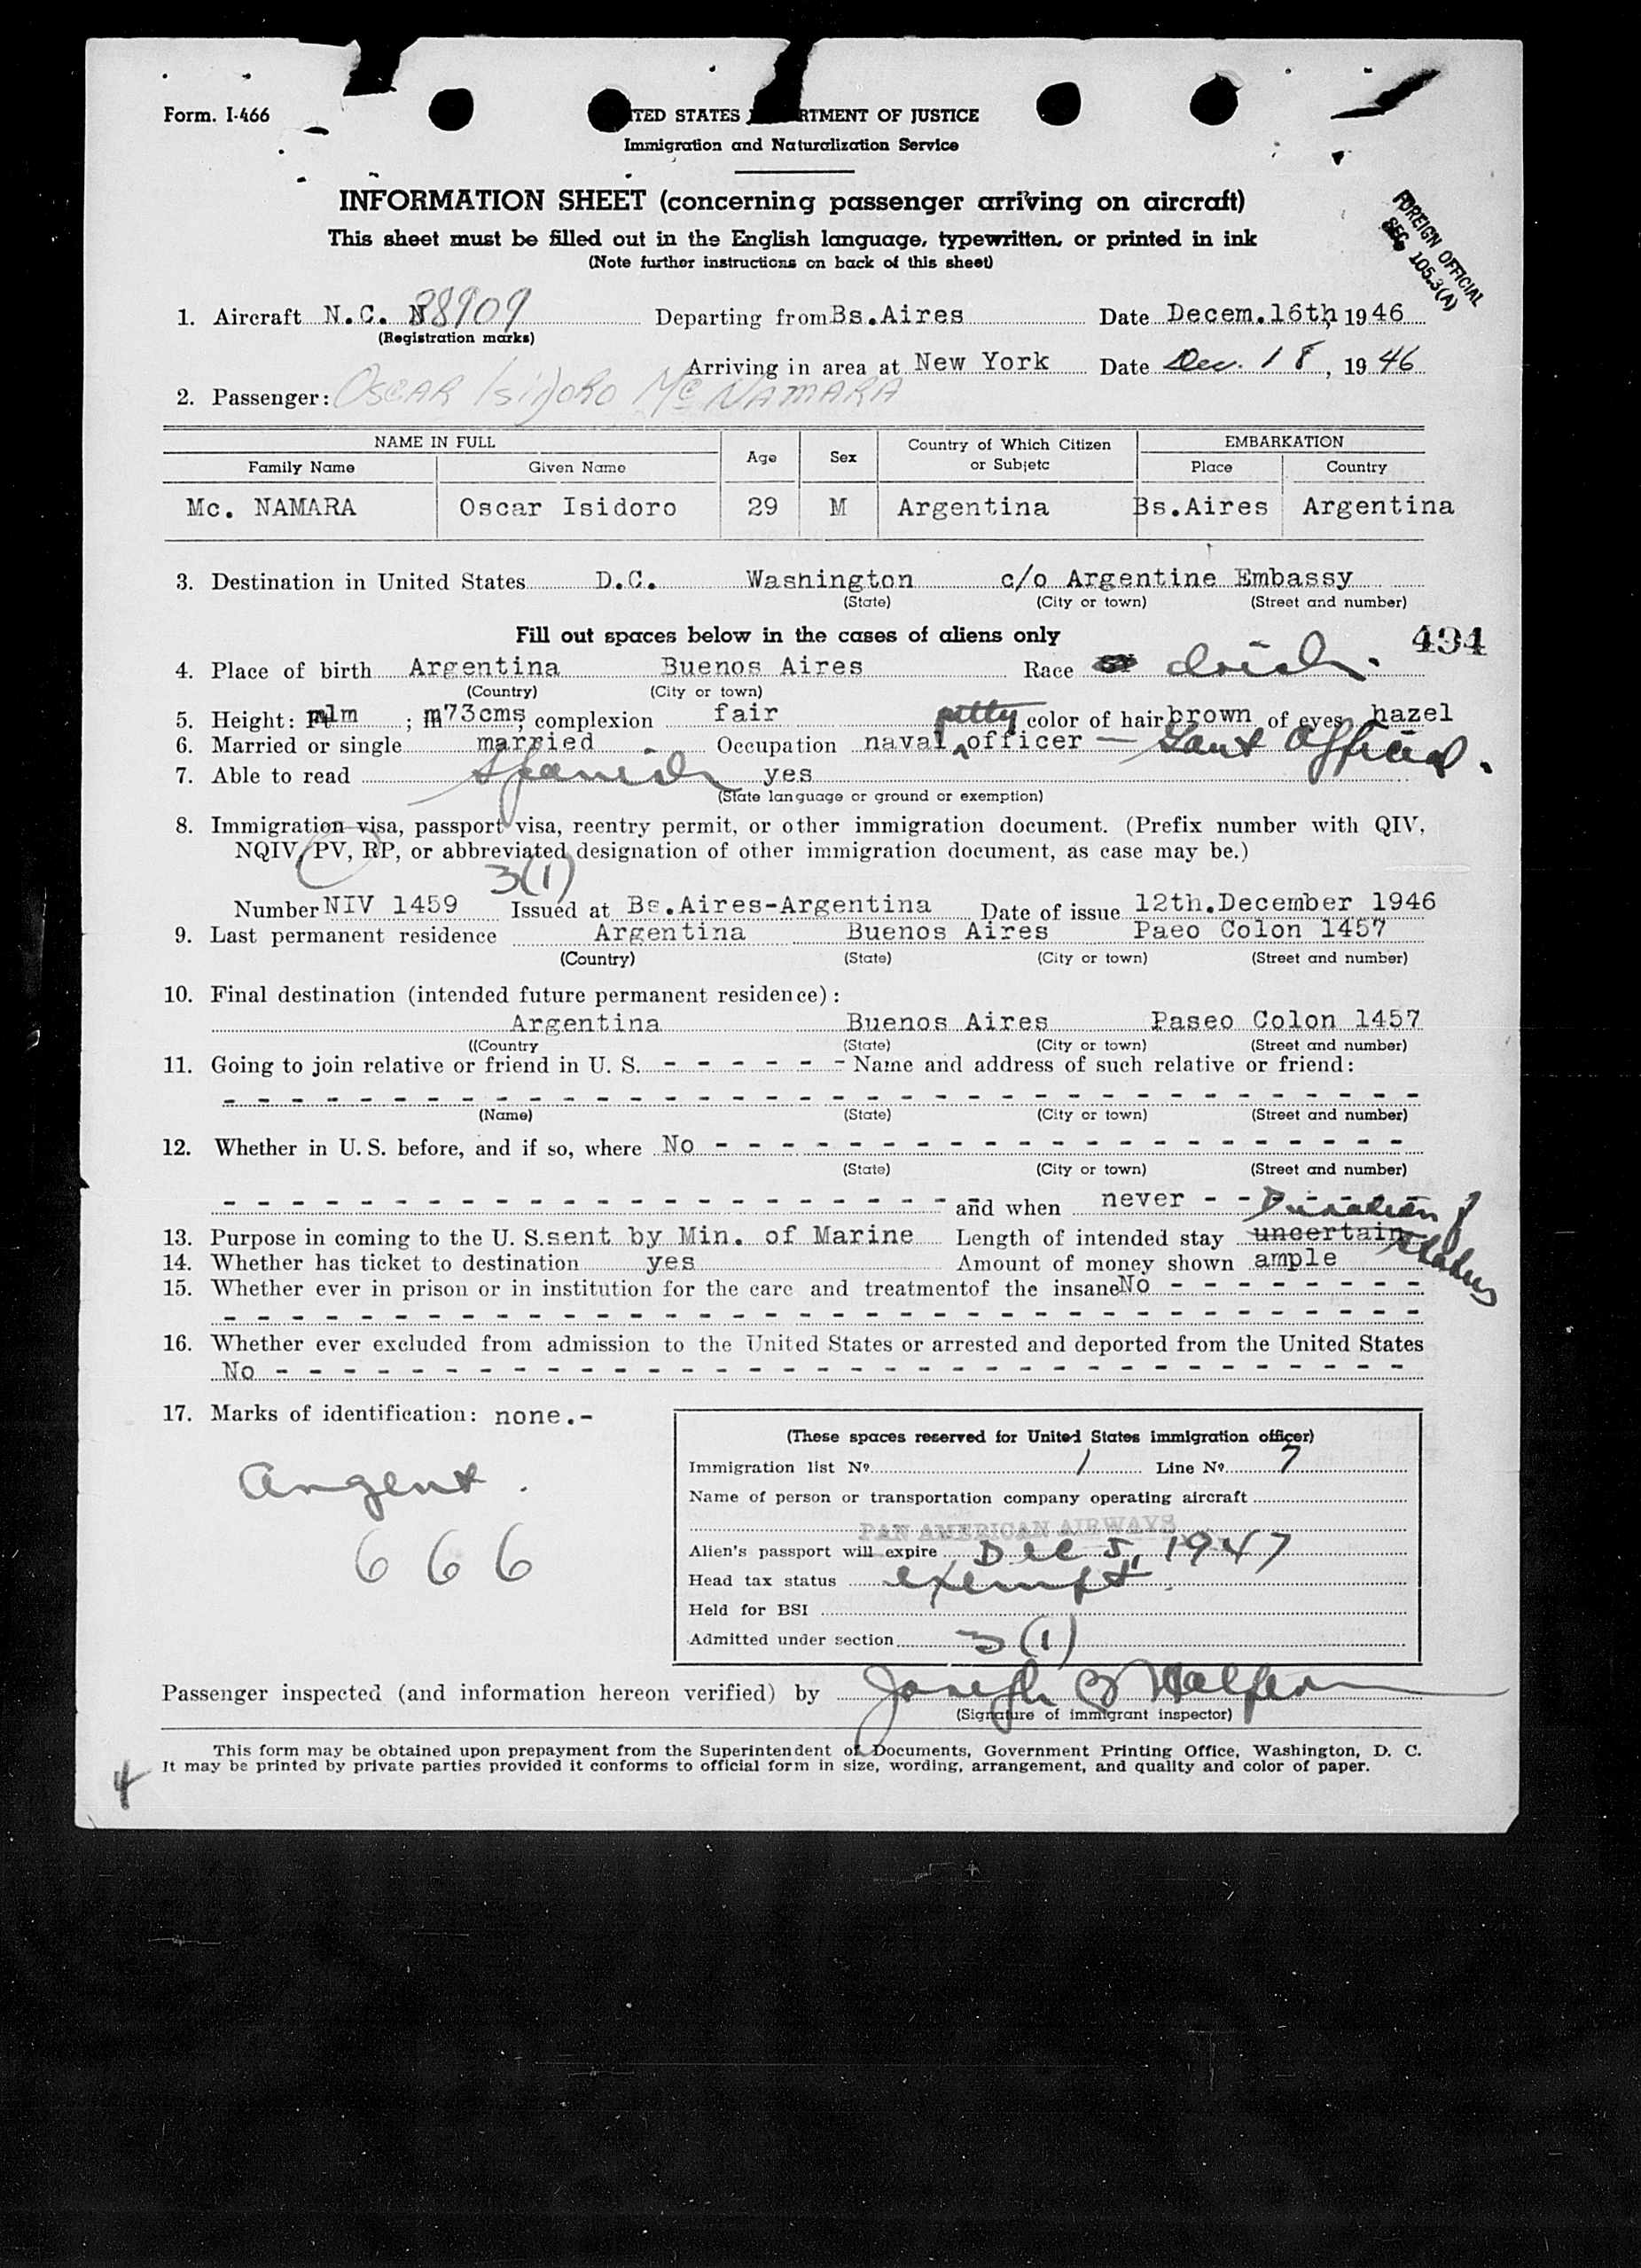 Form. I-466
TED STATES RTMENT OF JUSTICE
Immigration and Naturalization Service
INFORMATION SHEET (concerning passenger arriving on aircraft)
This sheet must be filled out in the English language, typewritten, or printed in ink
(Note further instructions on back of this sheet)
FOREIGN OFFICIAL
SEC 105.3(A)
1. Aircraft N.C. N 88909 Departing from Bs.Aires Date Decem.16th, 1946
(Registration marks)
Arriving in area at New York Date Dec. 18, 1946
2. Passenger: OSCAR ISIDORO Mc NAMARA
NAME IN FULL Age Sex Country of Which Citizen or Subjetc EMBARKATION
Family Name Given Name Place Country
Mc. NAMARA Oscar Isidoro 29 M Argentina Bs.Aires Argentina
3. Destination in United States D.C. Washington c/o Argentine Embassy
(State) (City or town) (Street and number)
Fill out spaces below in the cases of aliens only 494
4. Place of birth Argentina Buenos Aires Race Irish.
(Country) (City or town)
5. Height: m1m ; m73cms; complexion fair color of hair brown of eyes hazel
6. Married or single married Occupation naval petty officer — Gov't Official.
7. Able to read Spanish yes
(State language or ground or exemption)
8. Immigration visa, passport visa, reentry permit, or other immigration document. (Prefix number with QIV,
NQIV, PV, RP, or abbreviated designation of other immigration document, as case may be.)
3(1)
Number NIV 1459 Issued at Bs.Aires-Argentina Date of issue 12th.December 1946
9. Last permanent residence Argentina Buenos Aires Paeo Colon 1457
(Country) (State) (City or town) (Street and number)
10. Final destination (intended future permanent residence):
Argentina Buenos Aires Paseo Colon 1457
((Country (State) (City or town) (Street and number)
11. Going to join relative or friend in U. S. - - - - - - Name and address of such relative or friend:
(Name) (State) (City or town) (Street and number)
12. Whether in U. S. before, and if so, where No - - - - - - - - - - - - - - - - - - - - -
(State) (City or town) (Street and number)
- - - - - - - - - - - - - - - - - - - - - - and when never - - Duration of
13. Purpose in coming to the U. S. sent by Min. of Marine Length of intended stay uncertain status
14. Whether has ticket to destination yes Amount of money shown ample
15. Whether ever in prison or in institution for the care and treatmentof the insane No - - - - - - - -
16. Whether ever excluded from admission to the United States or arrested and deported from the United States
No - - - - - - - - - - - - - - - - - - - - - - - - - - - - - - - - - -
17. Marks of identification: none.-
Argent.
666
(These spaces reserved for United States immigration officer)
Immigration list No. 1 Line No. 7
Name of person or transportation company operating aircraft
PAN AMERICAN AIRWAYS
Alien's passport will expire Dec 5, 1947
Head tax status exempt
Held for BSI
Admitted under section 3(1)
Passenger inspected (and information hereon verified) by Joseph B Halpern
(Signature of immigrant inspector)
This form may be obtained upon prepayment from the Superintendent of Documents, Government Printing Office, Washington, D. C.
It may be printed by private parties provided it conforms to official form in size, wording, arrangement, and quality and color of paper.
4